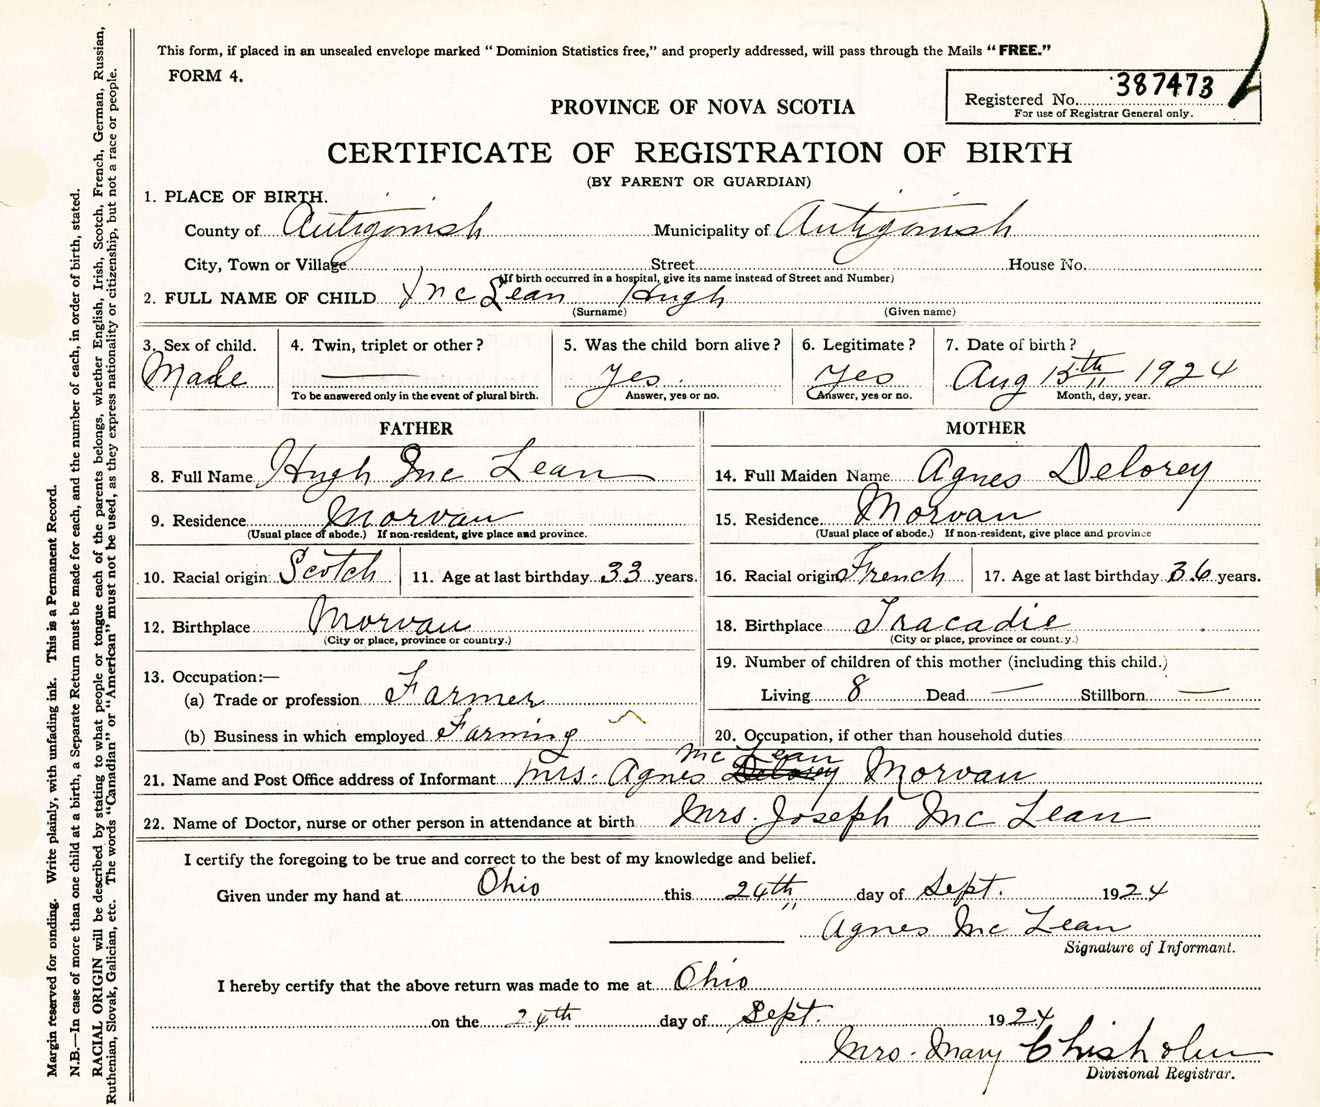 This form, if placed in an unsealed envelope marked "Dominion Statistics free," and properly addressed, will pass through the Mails "FREE."
FORM 4.
387473
Registered No.
For use of Registrar General only.
PROVINCE OF NOVA SCOTIA
CERTIFICATE OF REGISTRATION OF BIRTH
(BY PARENT OR GUARDIAN)
1. PLACE OF BIRTH.
County of Antigonish Municipality of Antigonish
City, Town or Village Street House No.
(If birth occurred in a hospital, give its name instead of Street and Number)
2. FULL NAME OF CHILD McLean Hugh
(Surname) (Given name)
3. Sex of child. 4. Twin, triplet or other? 5. Was the child born alive? 6. Legitimate? 7. Date of birth?
Male — Yes. Yes Aug 15th 1924
To be answered only in the event of plural birth. Answer, yes or no. Answer, yes or no. Month, day, year.
FATHER MOTHER
8. Full Name Hugh Mc Lean 14. Full Maiden Name Agnes Delorey
9. Residence Morvan 15. Residence Morvan
(Usual place of abode.) If non-resident, give place and province. (Usual place of abode.) If non-resident, give place and province
10. Racial origin Scotch 11. Age at last birthday 33 years. 16. Racial origin French 17. Age at last birthday 36 years.
12. Birthplace Morvan 18. Birthplace Tracadie
(City or place, province or country.) (City or place, province or country.)
13. Occupation:— 19. Number of children of this mother (including this child.)
(a) Trade or profession Farmer Living 8 Dead — Stillborn —
(b) Business in which employed Farming 20. Occupation, if other than household duties
Mc Lean
21. Name and Post Office address of Informant Mrs. Agnes Delorey Morvan
22. Name of Doctor, nurse or other person in attendance at birth Mrs. Joseph Mc Lean
I certify the foregoing to be true and correct to the best of my knowledge and belief.
Given under my hand at Ohio this 24th day of Sept. 1924
Agnes Mc Lean
Signature of Informant.
I hereby certify that the above return was made to me at Ohio
on the 24th day of Sept. 1924
Mrs. Mary Chisholm
Divisional Registrar.
Margin reserved for binding. Write plainly, with unfading ink. This is a Permanent Record.
N.B.—In case of more than one child at a birth, a Separate Return must be made for each, and the number of each, in order of birth, stated.
RACIAL ORIGIN will be described by stating to what people or tongue each of the parents belongs, whether English, Irish, Scotch, French, German, Russian,
Ruthenian, Slovak, Galician, etc. The words "Canadian" or "American" must not be used, as they express nationality or citizenship, but not a race or people.